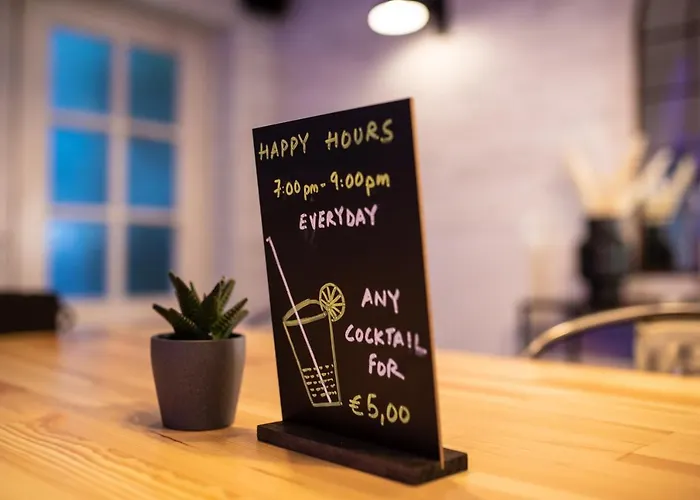 HAPPY HOURS
7:00 pm - 9:00 pm
EVERYDAY
ANY
COCKTAIL
FOR
€5,00